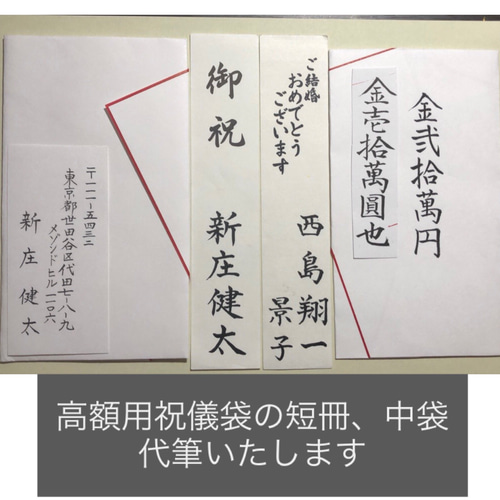 〒一一一-五四三二
東京都世田谷区代田七-八-九
メゾンドヒル一〇六
新庄健太
御祝
新庄健太
ご結婚
おめでとう
ございます
西島翔一
景子
金壱拾萬圓也
金弐拾萬円
高額用祝儀袋の短冊、中袋
代筆いたします